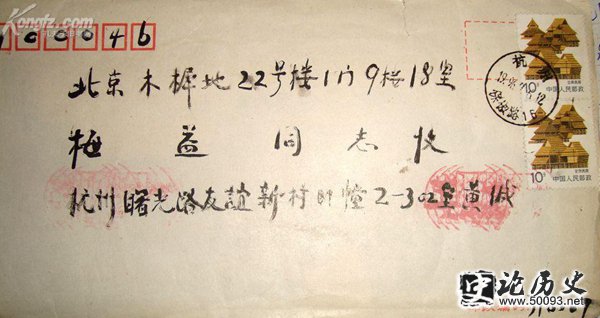 Kongfz.com
100046
北京木樨地22号楼1门9楼18室
梅益同志收
杭州曙光路友谊新村 幢2-302室黄源
杭州
12
10分
中国人民邮政
10分
中国人民邮政
史论历史
www.50093.net